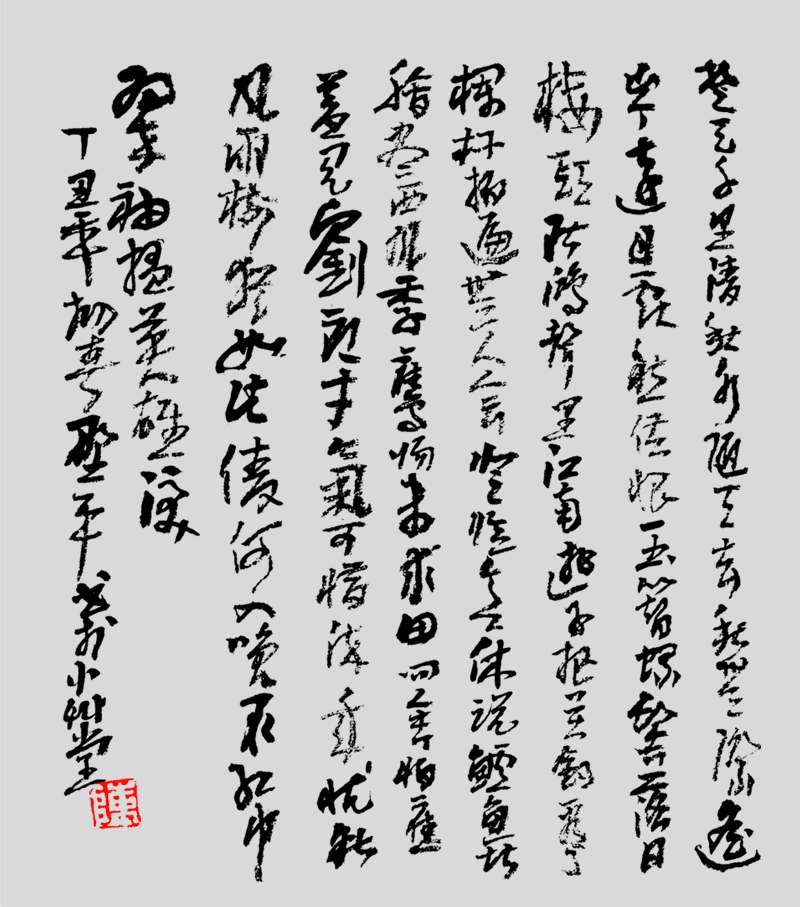 楚天千里清秋水随天去秋無際遙
岑遠目獻愁供恨玉簪螺髻落日
樓頭断鴻聲里江南遊子把吴鉤看了
欄杆拍遍無人會登臨意休说鱸魚堪
膾盡西風季鷹歸未求田问舍怕應
羞见劉郎才氣可惜流年憂愁
風雨樹猶如此倩何人喚取紅巾
翠袖揾英雄淚
丁丑年初春 平 小艸堂
陳